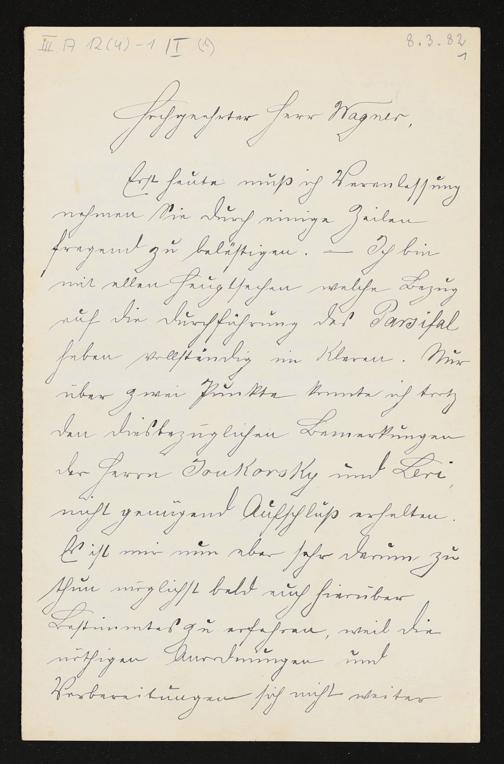 III A 12(4)-1 / I (1)
8.3.82
1
Hochgeehrter Herr Wagner,
Erst heute muß ich Veranlassung
nehmen Sie durch einige Zeilen
fragend zu belästigen. — Ich bin
mit allen Hauptsachen welche Bezug
auf die Durchführung des Parsifal
haben vollständig im Klaren. Nur
über zwei Punkte konnte ich trotz
den diesbezüglichen Bemerkungen
der Herrn Joukovsky und Levi,
nicht genügend Aufschluß erhalten.
Es ist mir nun aber sehr darum zu
thun möglichst bald auch hierüber
Bestimmtes zu erfahren, weil die
nöthigen Anordnungen und
Vorbereitungen sich nicht weiter